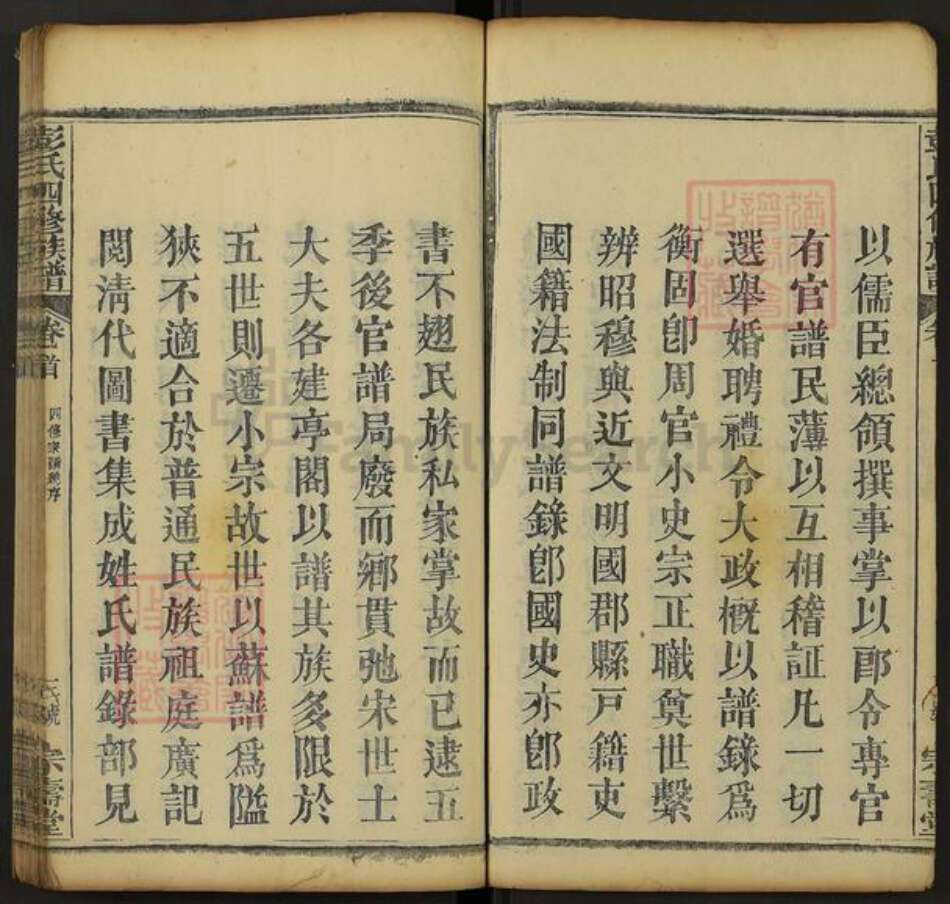 以儒臣總領撰事掌以郎令專官
有官譜民薄以互相稽証凡一切
選舉婚聘禮令大政概以譜錄為
衡固卽周官小史宗正職奠世繫
辨昭穆與近文明國郡縣戸籍吏
國籍法制同譜錄卽國史亦卽政
書不翅民族私家掌故而已逮五
季後官譜局廢而鄉貫弛宋世士
大夫各建亭閣以譜其族多限於
五世則遷小宗故世以蘇譜爲隘
狹不適合於普通民族祖庭廣記
閱淸代圖書集成姓氏譜錄部見
彭氏四修族譜
卷首
四修宗譜總序
宗壽堂
FamilySearch